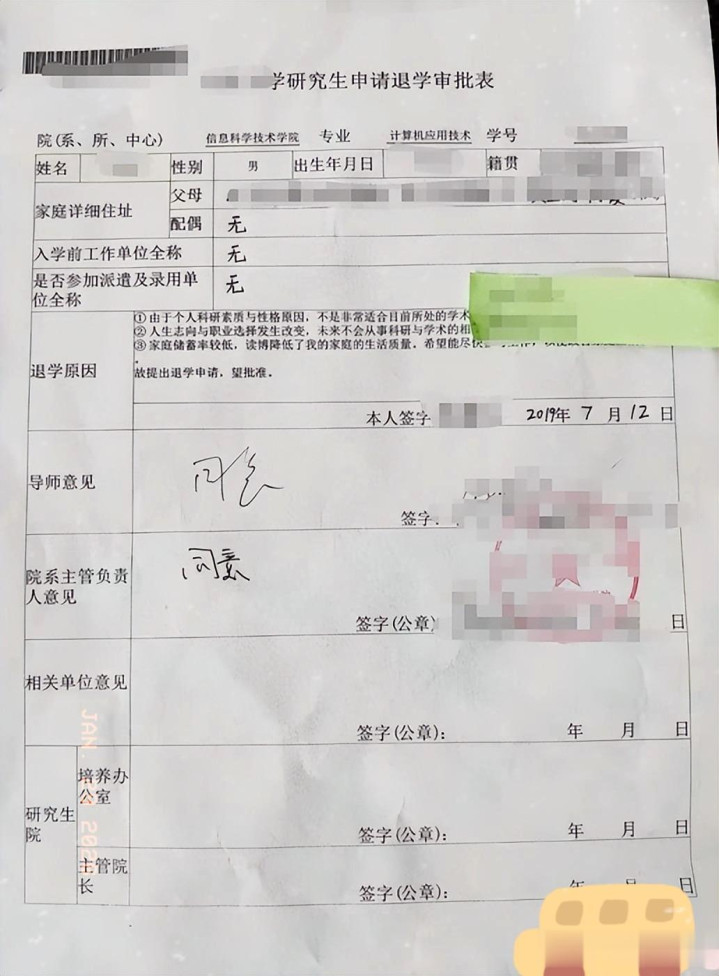 学研究生申请退学审批表
院(系、所、中心) 信息科学技术学院 专业 计算机应用技术 学号
姓名 性别 男 出生年月日 籍贯
家庭详细住址 父母
配偶 无
入学前工作单位全称 无
是否参加派遣及录用单
位全称 无
退学原因
① 由于个人科研素质与性格原因，不是非常适合目前所处的学术
② 人生志向与职业选择发生改变，未来不会从事科研与学术的相
③ 家庭储蓄率较低，读博降低了我的家庭的生活质量。希望能尽快
故提出退学申请，望批准。
本人签字 2019年 7 月 12 日
导师意见 同意
签字：
院系主管负责
人意见 同意
签字(公章) 日
相关单位意见
签字(公章)： 年 月 日
研究生
院
培养办
公室
签字(公章)： 年 月 日
主管院
长
签字(公章)： 年 月 日